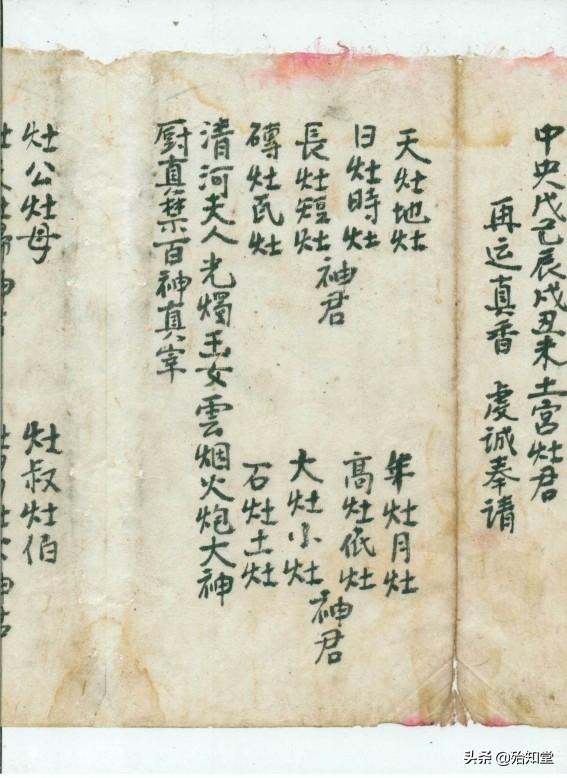 中央戊己辰戌丑未土宫灶君
再运真香 虔诚奉请
天灶地灶 年灶月灶
日灶時灶 高灶低灶
神君 神君
長灶短灶 大灶小灶
磚灶瓦灶 石灶土灶
清河夫人光燭玉女雲烟火炮大神
厨真禁百神真宰
灶公灶母 灶叔灶伯
头条 @殆知堂